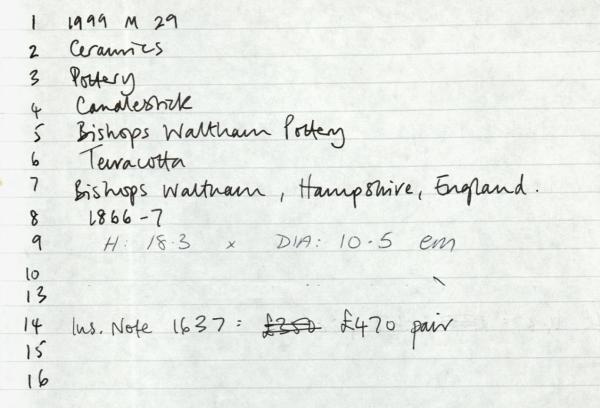 1 1999 M 29
2 Ceramics
3 Pottery
4 Candlestick
5 Bishops Waltham Pottery
6 Terracotta
7 Bishops Waltham, Hampshire, England.
8 1866-7
9 H: 18.3 x DIA: 10.5 cm
10
13
14 Ins. Note 1637: £350 £470 pair
15
16